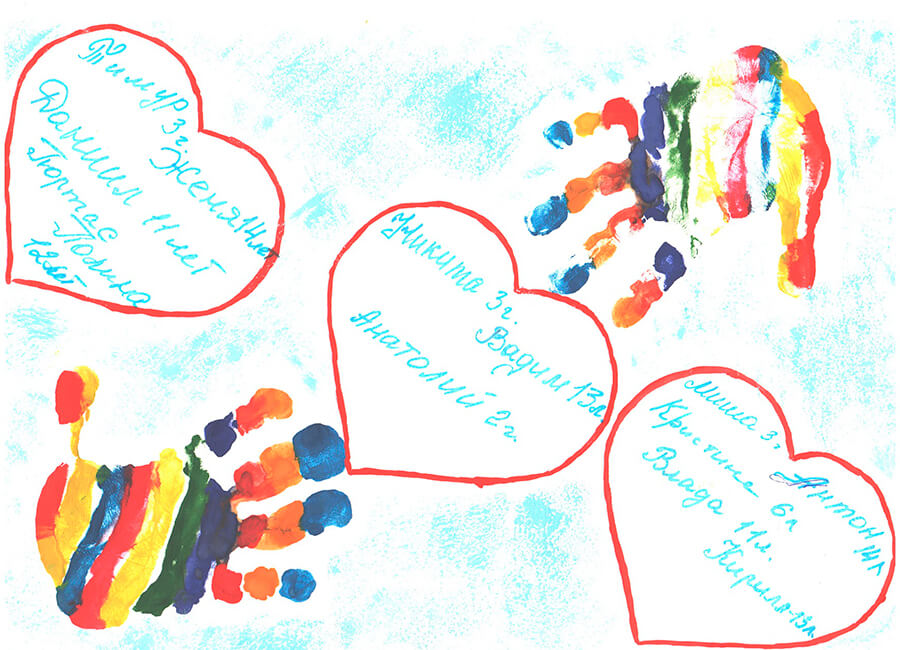 Тимур 3г.
Женя 14 лет
Даниил 11 лет
Полина
12 лет
Никита 3г.
Вадим 13л
Анатолий 2г.
Миша 3г
Антон 14л
Кристине 6л
Влада 11л.
Кирилл-13л.